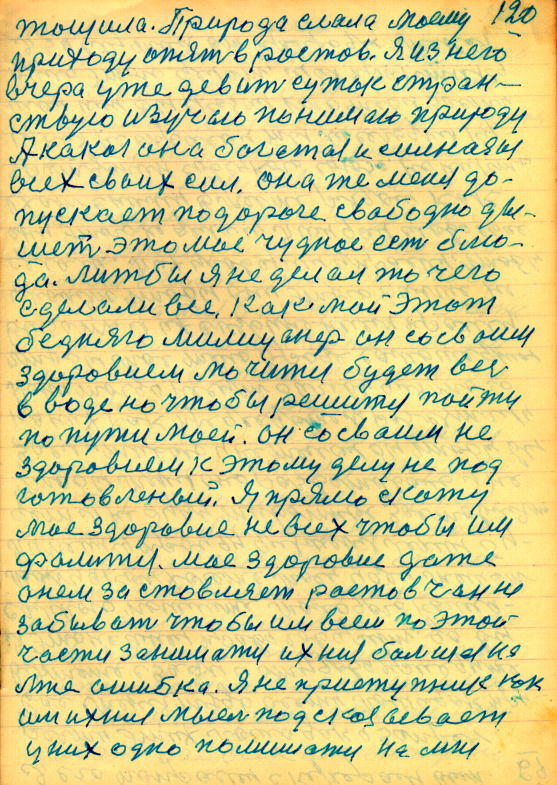 тощила. Природа слала моему 120
приходу опят в ростов. Я из него
вчера уже девит суток стран-
ствую изучаю понимаю природу
Якакая она богатая и силная
всех своих сил, она же меня до-
пускает подороге свабодно ды-
шет это мое чудное ест блю-
да. литбы я не делал то чего
сделали все, Как мой этот
бедняго милицанер он сосвоим
здоровием мочити будет
в воде но чтобы решити пойти
попути моей. он сосваим не
здоровием к этому делу не под
готовленый. Я прямо скажу
мое здоровие не всех чтобы им
фолити. мое здоровие даже
онем застовляет ростовчан не
забыват чтобы им всем по этой
части занимати ихния болшая
лже ошибка. Я не приступник как
им ихния мысл подсказевает
у них одно